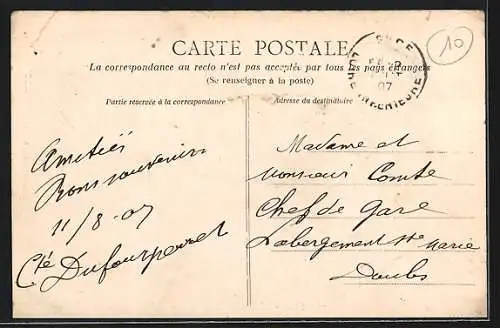 CARTE POSTALE
La correspondance au recto n'est pas acceptée par tous les pays étrangers
(Se renseigner à la poste)
Partie réservée à la correspondance
Adresse du destinataire
10
07
INFERIEURE
Amitiés
Bons souvenirs
11/8-07
Cte Dufourperret
Madame et
Monsieur Comte
Chef de Gare
Labergement Ste Marie
Doubs